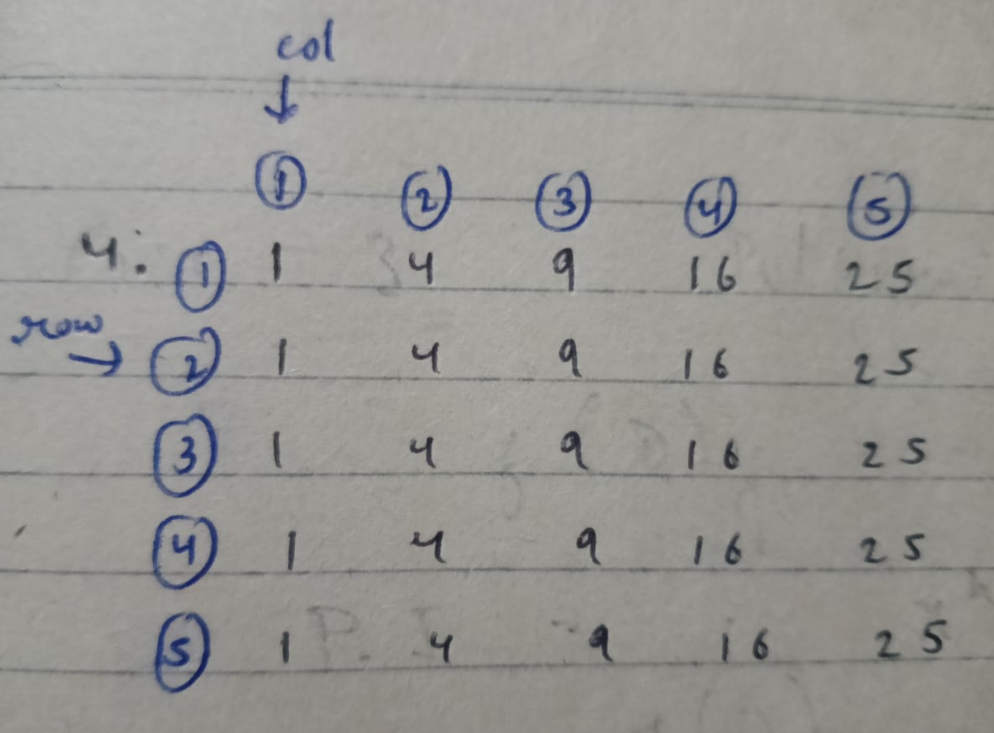 col
↓
① ② ③ ④ ⑤
4: ① 1 4 9 16 25
row → ② 1 4 9 16 25
③ 1 4 9 16 25
④ 1 4 9 16 25
⑤ 1 4 9 16 25